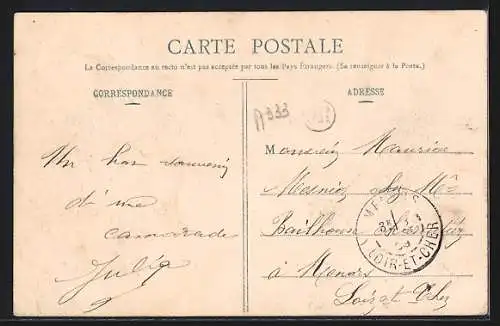 CARTE POSTALE
La Correspondance au recto n'est pas acceptée par tous les Pays étrangers. (Se renseigner à la Poste.)
CORRESPONDANCE
ADRESSE
A333
Un bon souvenir
d'une
camarade
Julia
Monsieur Maurice
à Menars
Loir et Cher
LOIR-ET-CHER